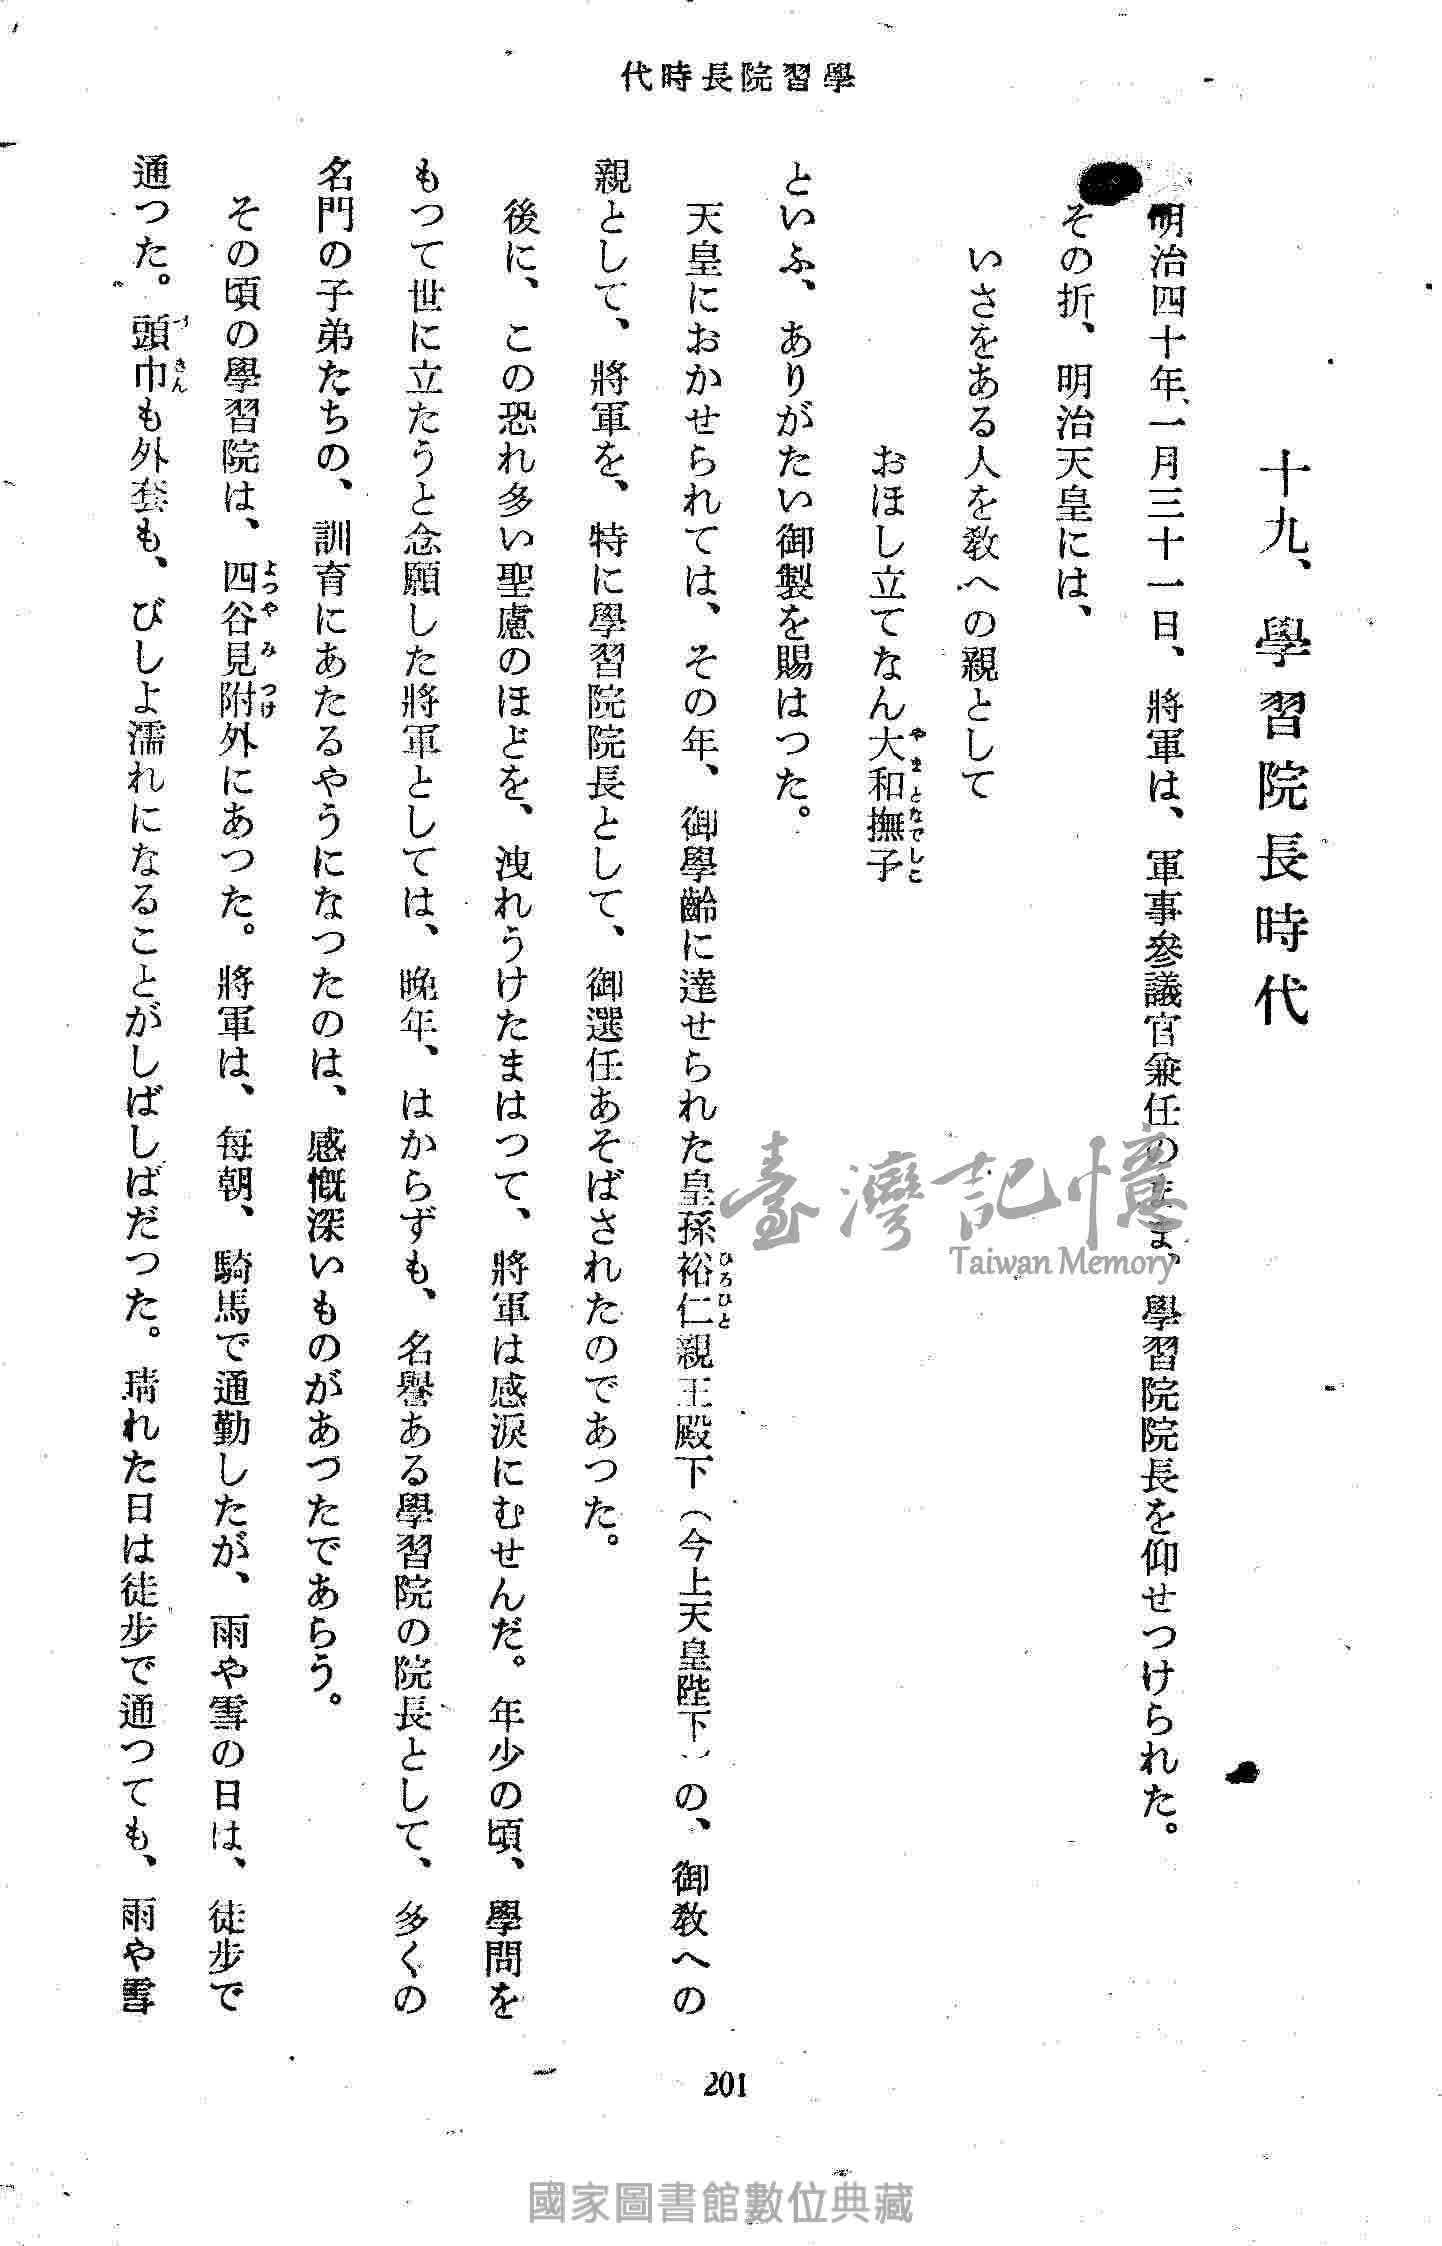 代時長院習學
十九、學習院長時代
明治四十年、一月三十一日、將軍は、軍事參議官兼任のまま、學習院院長を仰せつけられた。
その折、明治天皇には、
いさをある人を敎への親として
おほし立てなん大和撫子
やまとなでしこ
といふ、ありがたい御製を賜はつた。
天皇におかせられては、その年、御學齡に達せられた皇孫裕仁親王殿下(今上天皇陛下)の、御敎への
ひろひと
親として、將軍を、特に學習院院長として、御選任あそばされたのであつた。
後に、この恐れ多い聖慮のほどを、洩れうけたまはつて、將軍は感淚にむせんだ。年少の頃、學問を
もつて世に立たうと念願した將軍としては、晩年、はからずも、名譽ある學習院の院長として、多くの
名門の子弟たちの、訓育にあたるやうになつたのは、感慨深いものがあつたであらう。
その頃の學習院は、四谷見附外にあつた。將軍は、每朝、騎馬で通勤したが、雨や雪の日は、徒步で
よつやみつけ
通つた。頭巾も外套も、びしよ濡れになることがしばしばだつた。晴れた日は徒步で通つても、雨や雪
づきん
201
臺灣記憶
Taiwan Memory
國家圖書館數位典藏